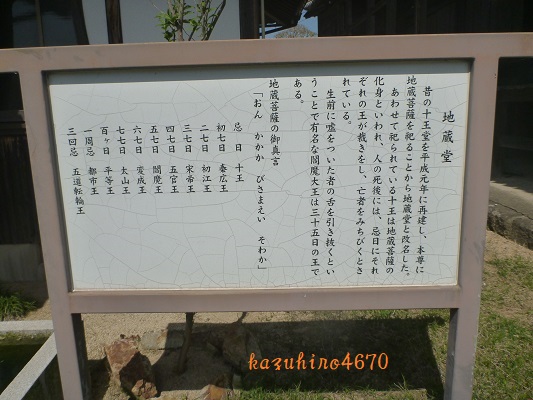 地蔵堂
昔の十王堂を平成元年に再建し、本尊に
地蔵菩薩を祀ることから地蔵堂と改名した。
あわせて祀られている十王は地蔵菩薩の
化身といわれ、人の死後には、忌日にそれ
ぞれの王が裁きをし、亡者をみちびくとさ
れている。
生前に嘘をついた者の舌を引き抜くとい
うことで有名な閻魔大王は三十五日の王で
ある。
地蔵菩薩の御真言
「おん かかか びさまえい そわか」
忌日 十王
初七日 秦広王
二七日 初江王
三七日 宋帝王
四七日 五官王
五七日 閻魔王
六七日 変成王
七七日 太山王
百ヶ日 平等王
一周忌 都市王
三回忌 五道転輪王
kazuhiro4670